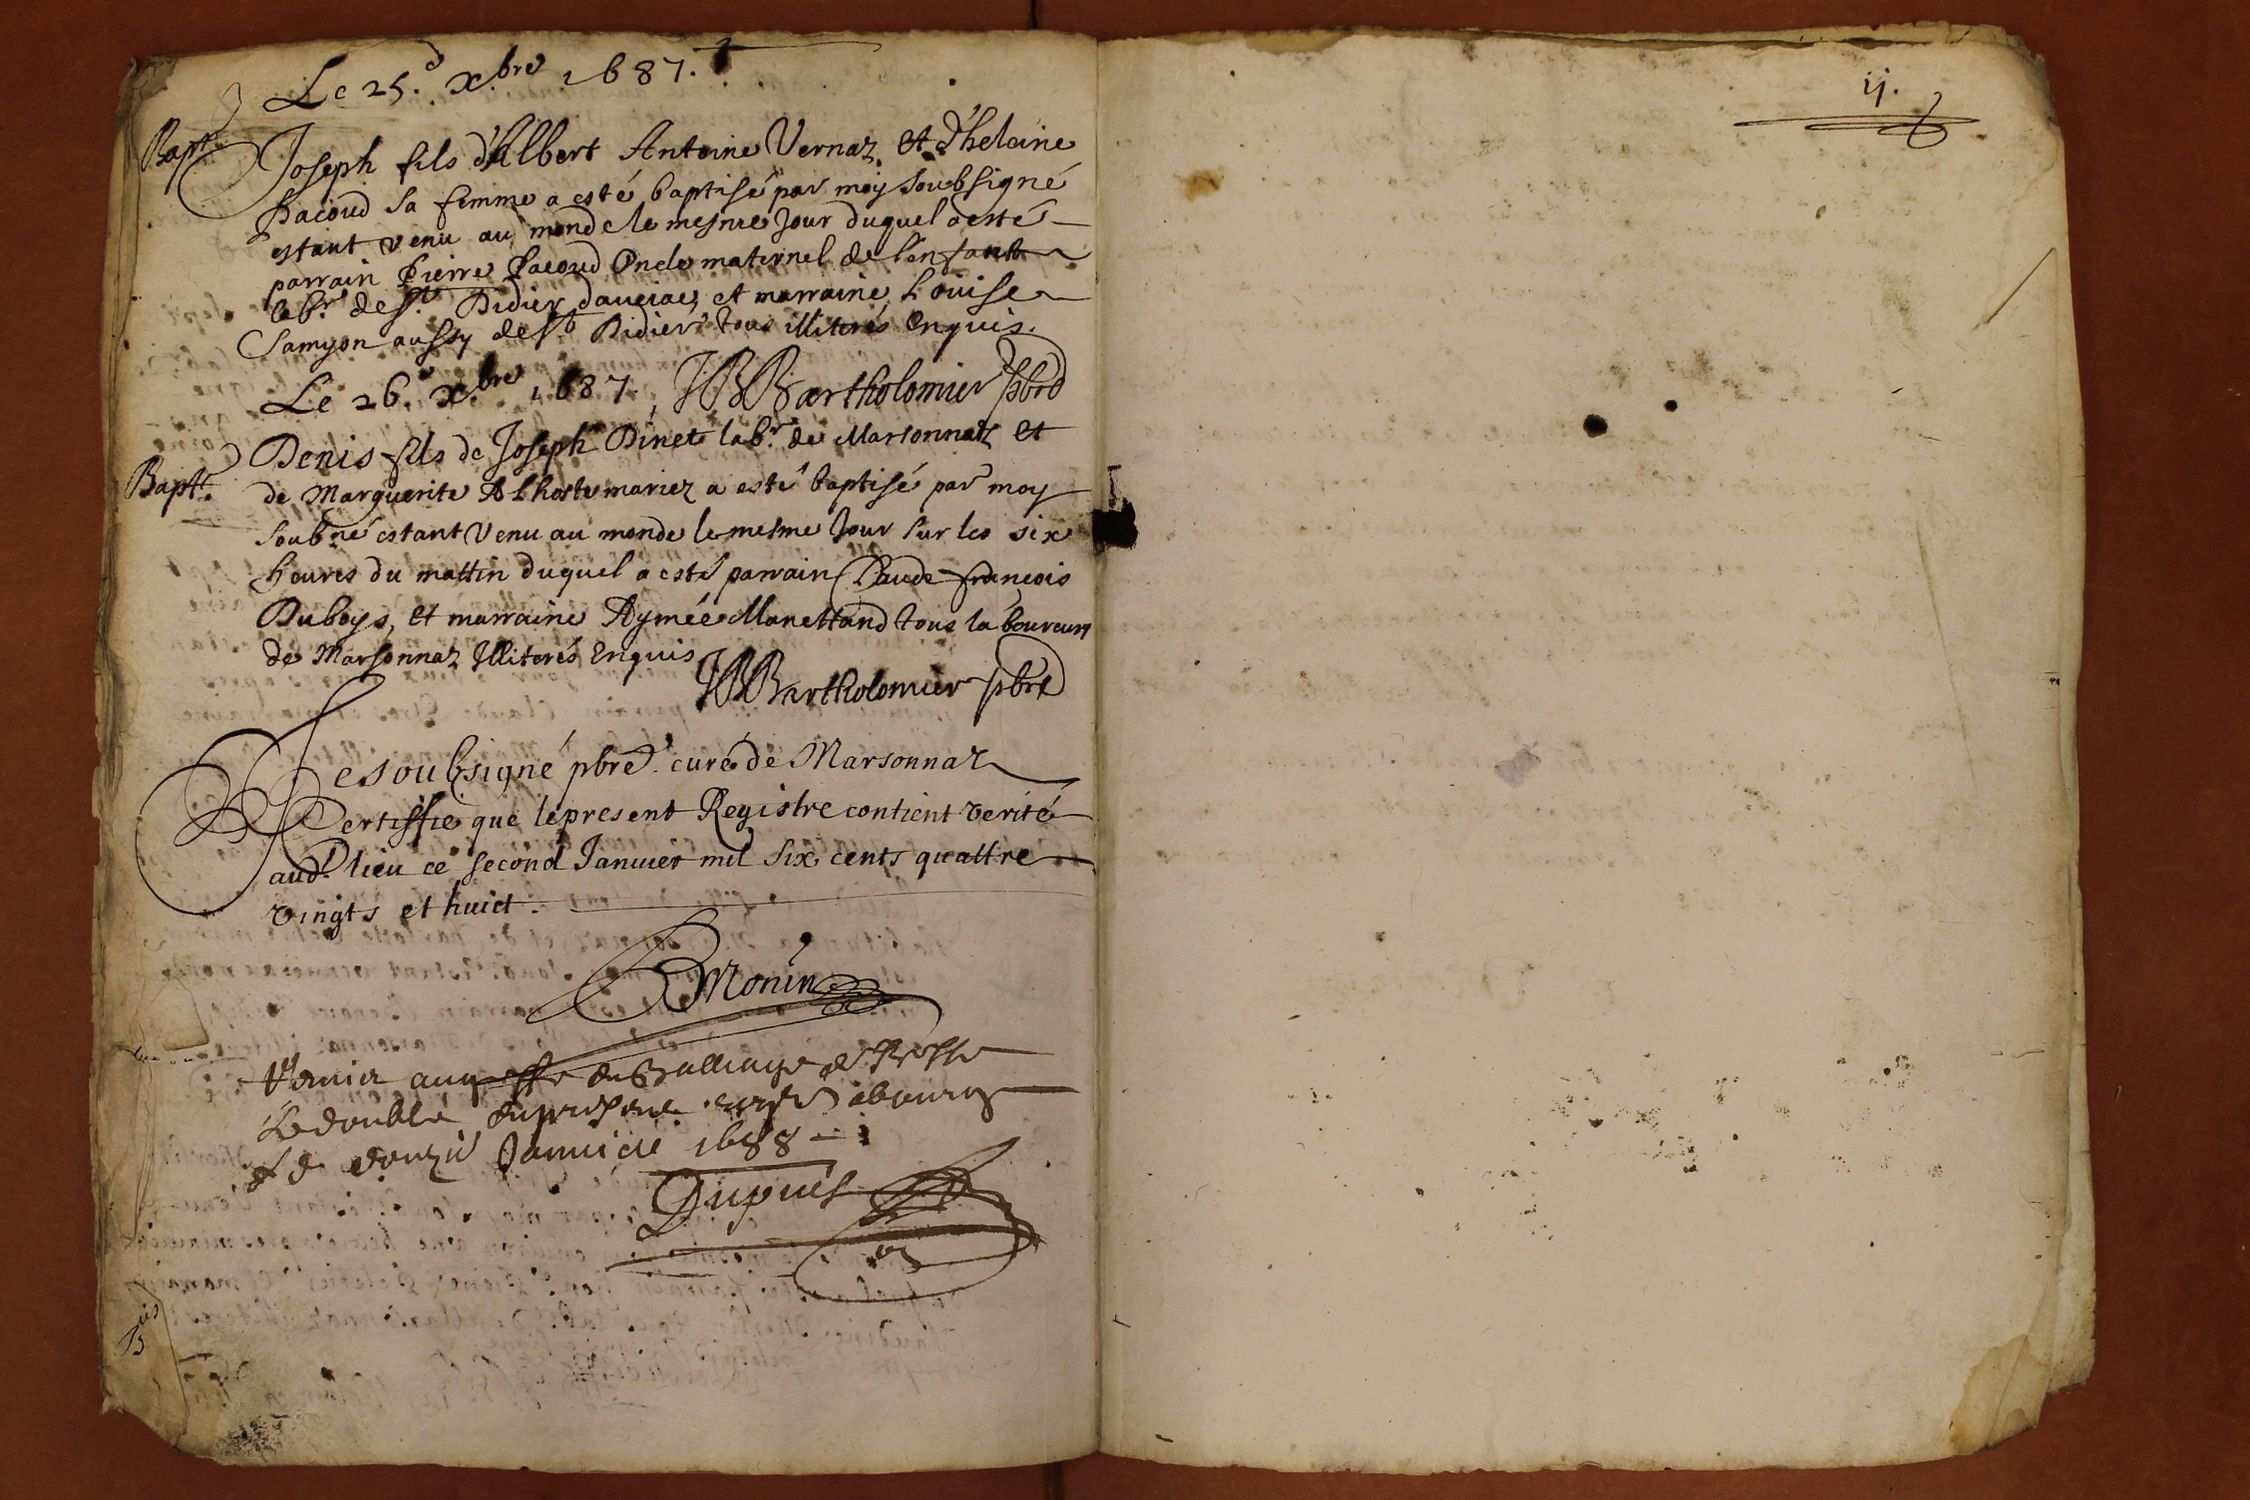 Le 25.e x.bre 1687.
Bapt.
Joseph fils d'Albert Antoine Vernaz et d'helaine
Pacoud sa femme a esté baptisé par moy soubsigné
estant venu au monde le mesme Jour duquel a esté
parrain Pierre Pacoud Oncle maternel de l'enfant
lab.r de S.t Didier d'auciac, et marraine Louise
Samyon aussy de S.t Didier tous illiterés Enquis.
Le 26.e x.bre 1687. JBBartholomier pbre
Bapt.
Denis fils de Joseph Dinet lab.r de Marsonnaz et
de Marguerite Alhoste mariez a esté baptisé par moy
soub.né estant Venu au monde le mesme Jour sur les six
heures du mattin duquel a esté parrain Claude françois
Duboys, et marraine Aymée Manettand tous laboureurs
de Marsonnaz Illiterés Enquis
JBBartholomier pbre
Je soubsigné pbre curé de Marsonnaz
Certiffie que le present Registre contient verité
aud. lieu ce second Janvier mil six cents quattre
vingts et huict.
Monin
Remis au greffe du Balliage de Bresse
Le double du present à bourg
Le douze Janvier 1688
Dupuis
ij.